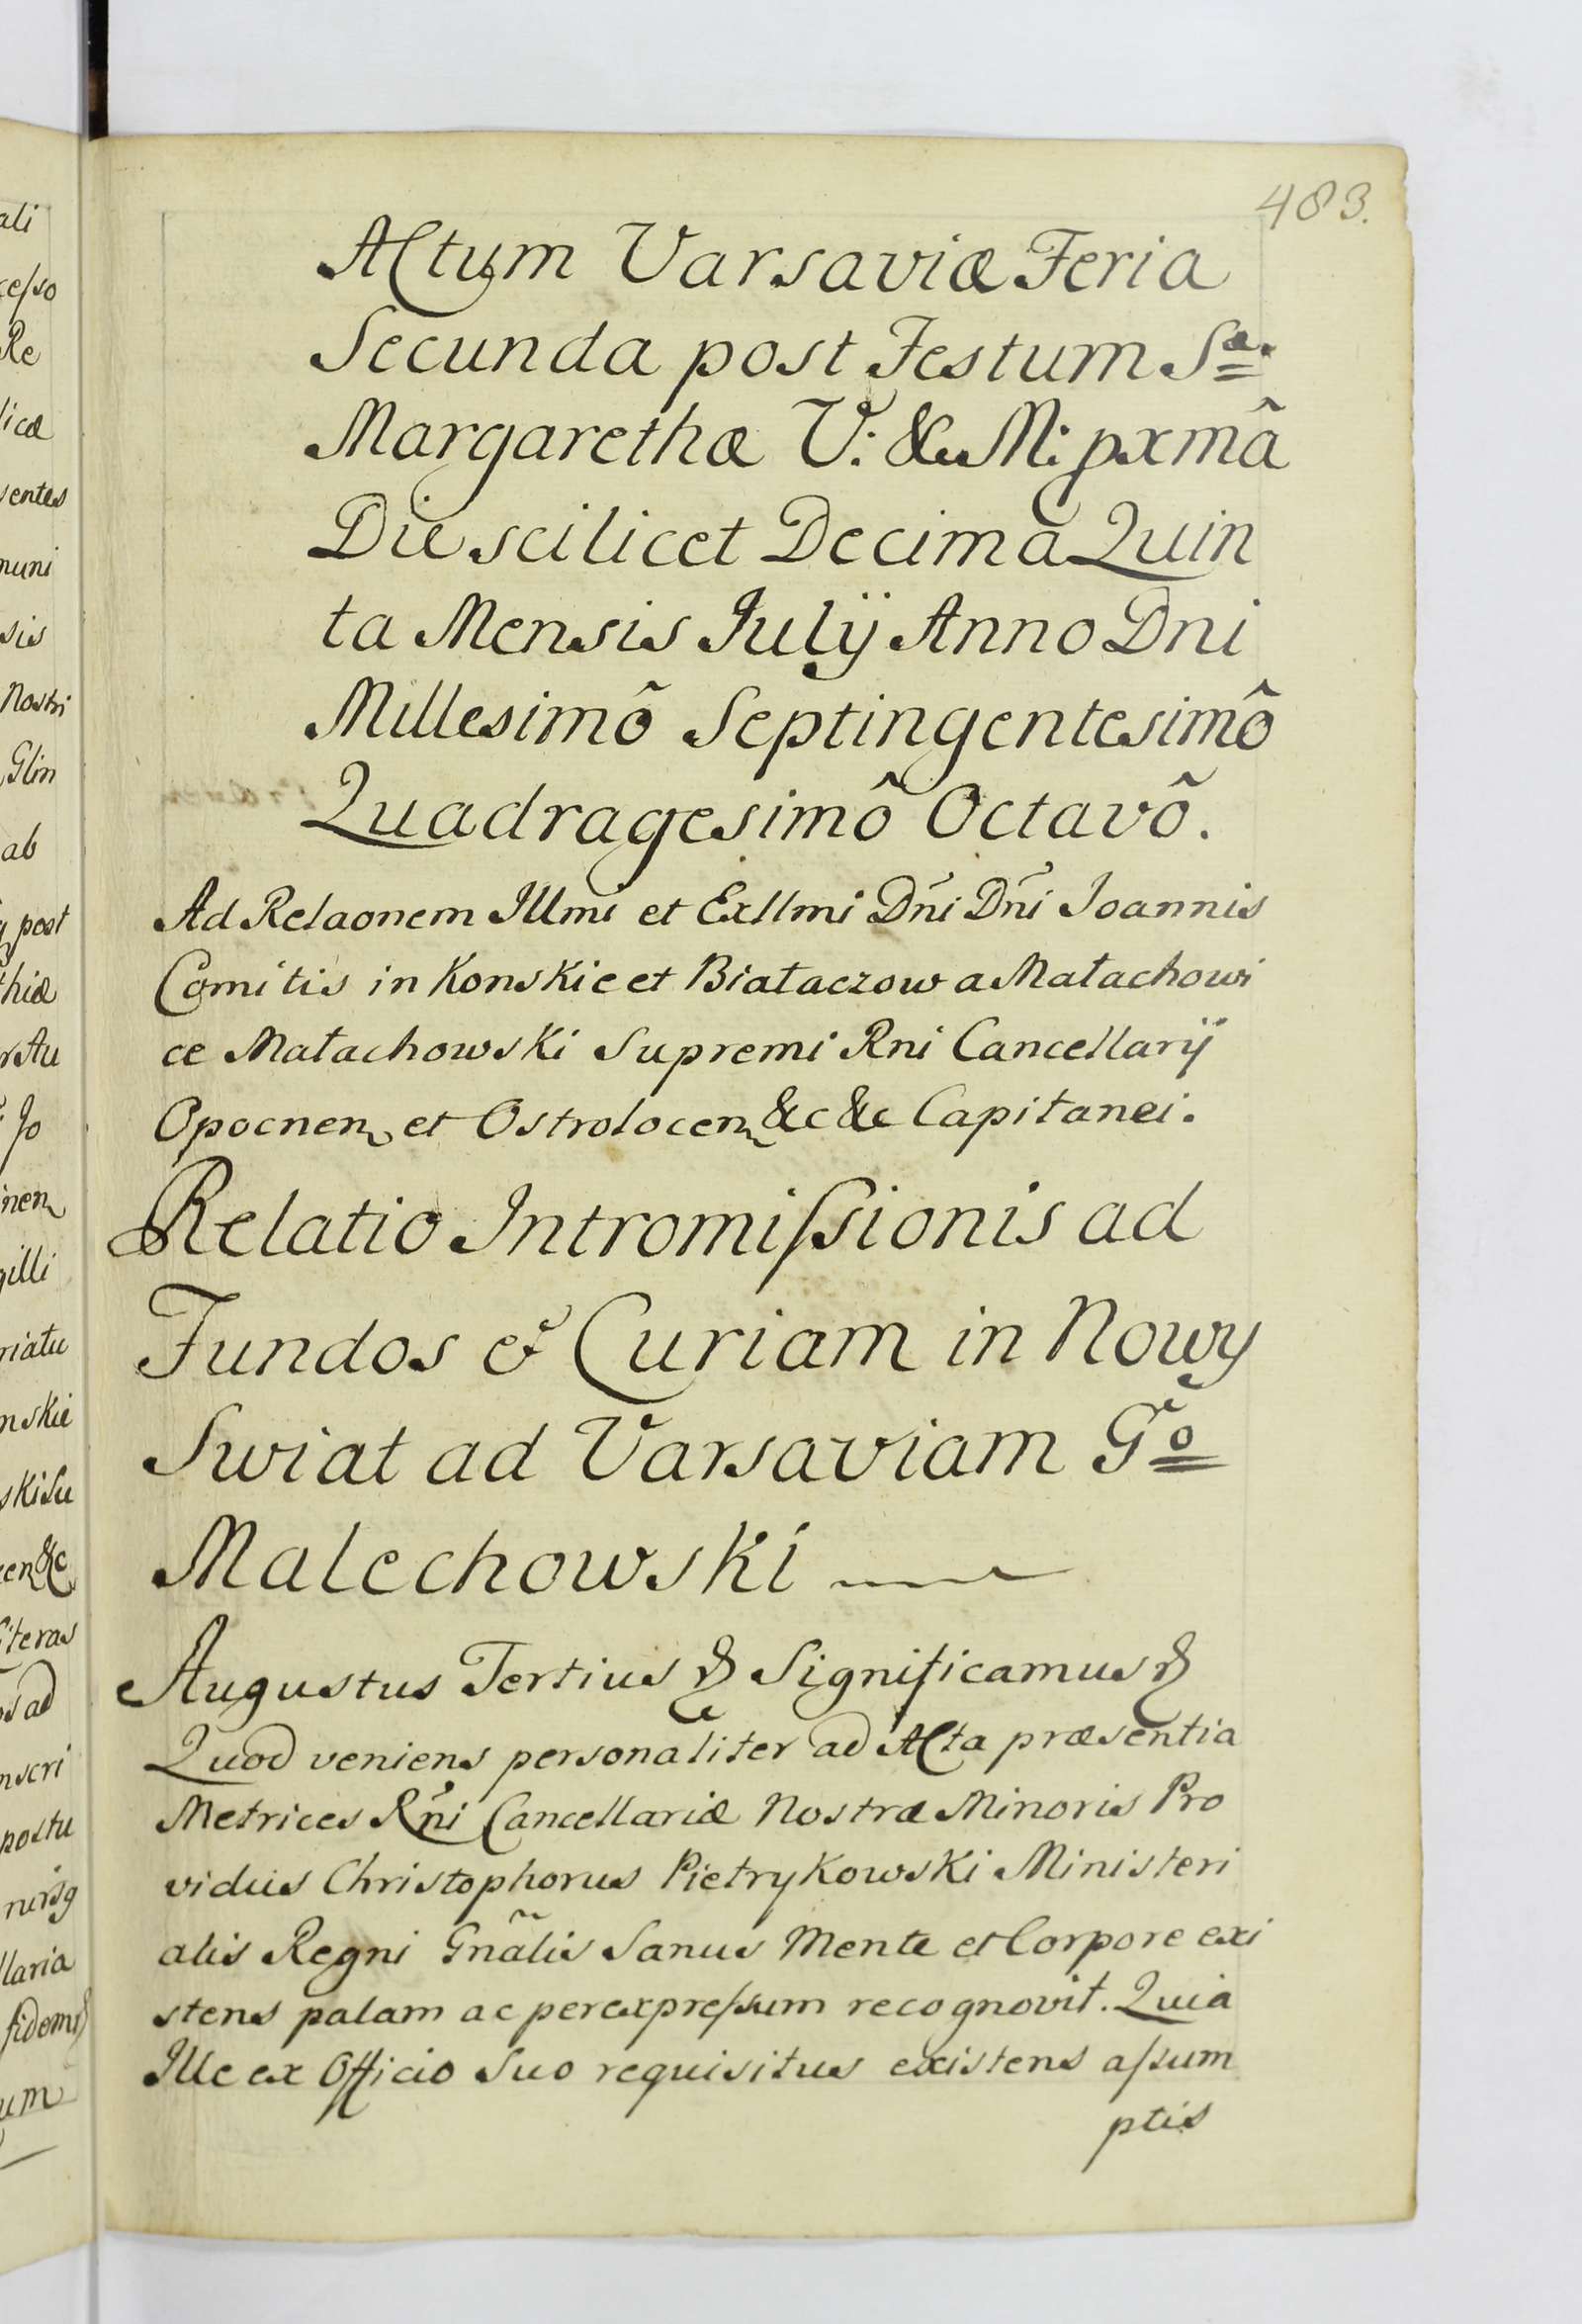 483.
Actum Varsaviæ Feria
Secunda post Festum Sæ.
Margarethæ V: & M: pxmâ
Die scilicet Decima Quin
ta Mensis Julÿ Anno Dni
Millesimô Septingentesimô
Quadragesimô Octavô.
Ad Relaonem Illmi et Exllmi Dni Dni Joannis
Comitis in Konskie et Białaczow a Małachowi
ce Małachowski Supremi Rni Cancellarÿ
Opocnen et Ostrołocen &c &c Capitanei.
Relatio Intromiſsionis ad
Fundos et Curiam in Nowy
Swiat ad Varsaviam Go
Malechowski
Augustus Tertius & Significamus &
Quod veniens personaliter ad Acta præsentia
Metrices Rni Cancellariæ Nostræ Minoris Pro
vidus Christophorus Pietrykowski Ministeri
alis Regni Gnãlis Sanus Mente et Corpore exi
stens palam ac perexpreſsum recognovit. Quia
Ille ex Officio Suo requisitus existens aſsum
ptis